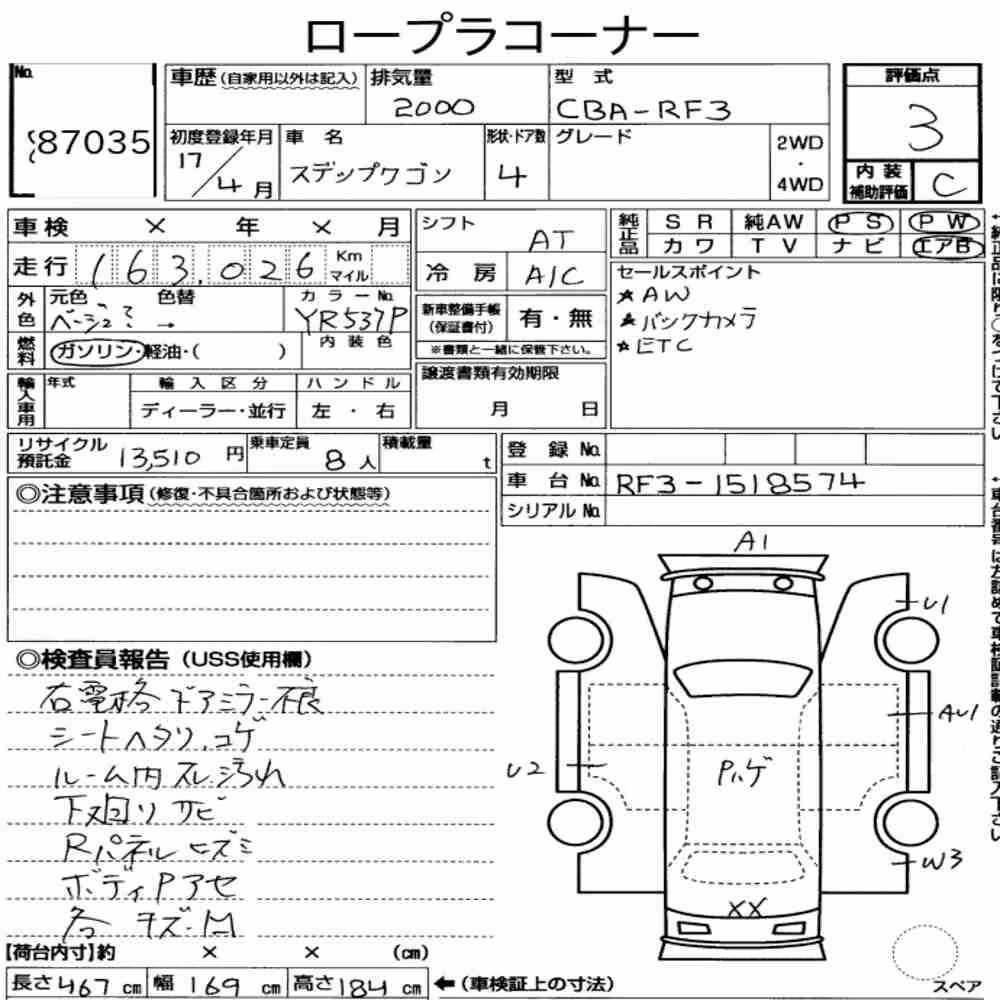 ロープラコーナー
No.
87035
車歴(自家用以外は記入)
排気量
2000
型 式
CBA-RF3
評価点
3
内装
補助評価
C
初度登録年月
17/4月
車 名
ステップワゴン
形状・ドア数
4
グレード
2WD
・
4WD
車検 × 年 × 月
走行 163,026 Km
マイル
外色
元色
ベージュ
色替
→
カラーNo.
YR537P
燃料
ガソリン・軽油・( )
内装色
輸入車用
年式
輸入区分
ディーラー・並行
ハンドル
左 ・ 右
シフト
AT
冷房
A/C
新車整備手帳
(保証書付)
有・無
※書類と一緒に保管下さい。
譲渡書類有効期限
月 日
純正品
SR 純AW PS PW
カワ TV ナビ エアB
セールスポイント
★AW
★バックカメラ
★ETC
リサイクル
預託金
13,510 円
乗車定員
8人
積載量
t
登録No.
車台No. RF3-1518574
シリアルNo.
◎注意事項(修復・不具合箇所および状態等)
◎検査員報告(USS使用欄)
右電格ドアミラー不良
シートヘタリ、コゲ
ルーム内スレ汚れ
下廻リ サビ
Rパネル ヒズミ
ボディPアセ
各 キズ・凹
A1
U1
AU1
U2
Pハゲ
W3
XX
スペア
【荷台内寸】約 × × (cm)
長さ467cm 幅169cm 高さ184cm ←(車検証上の寸法)